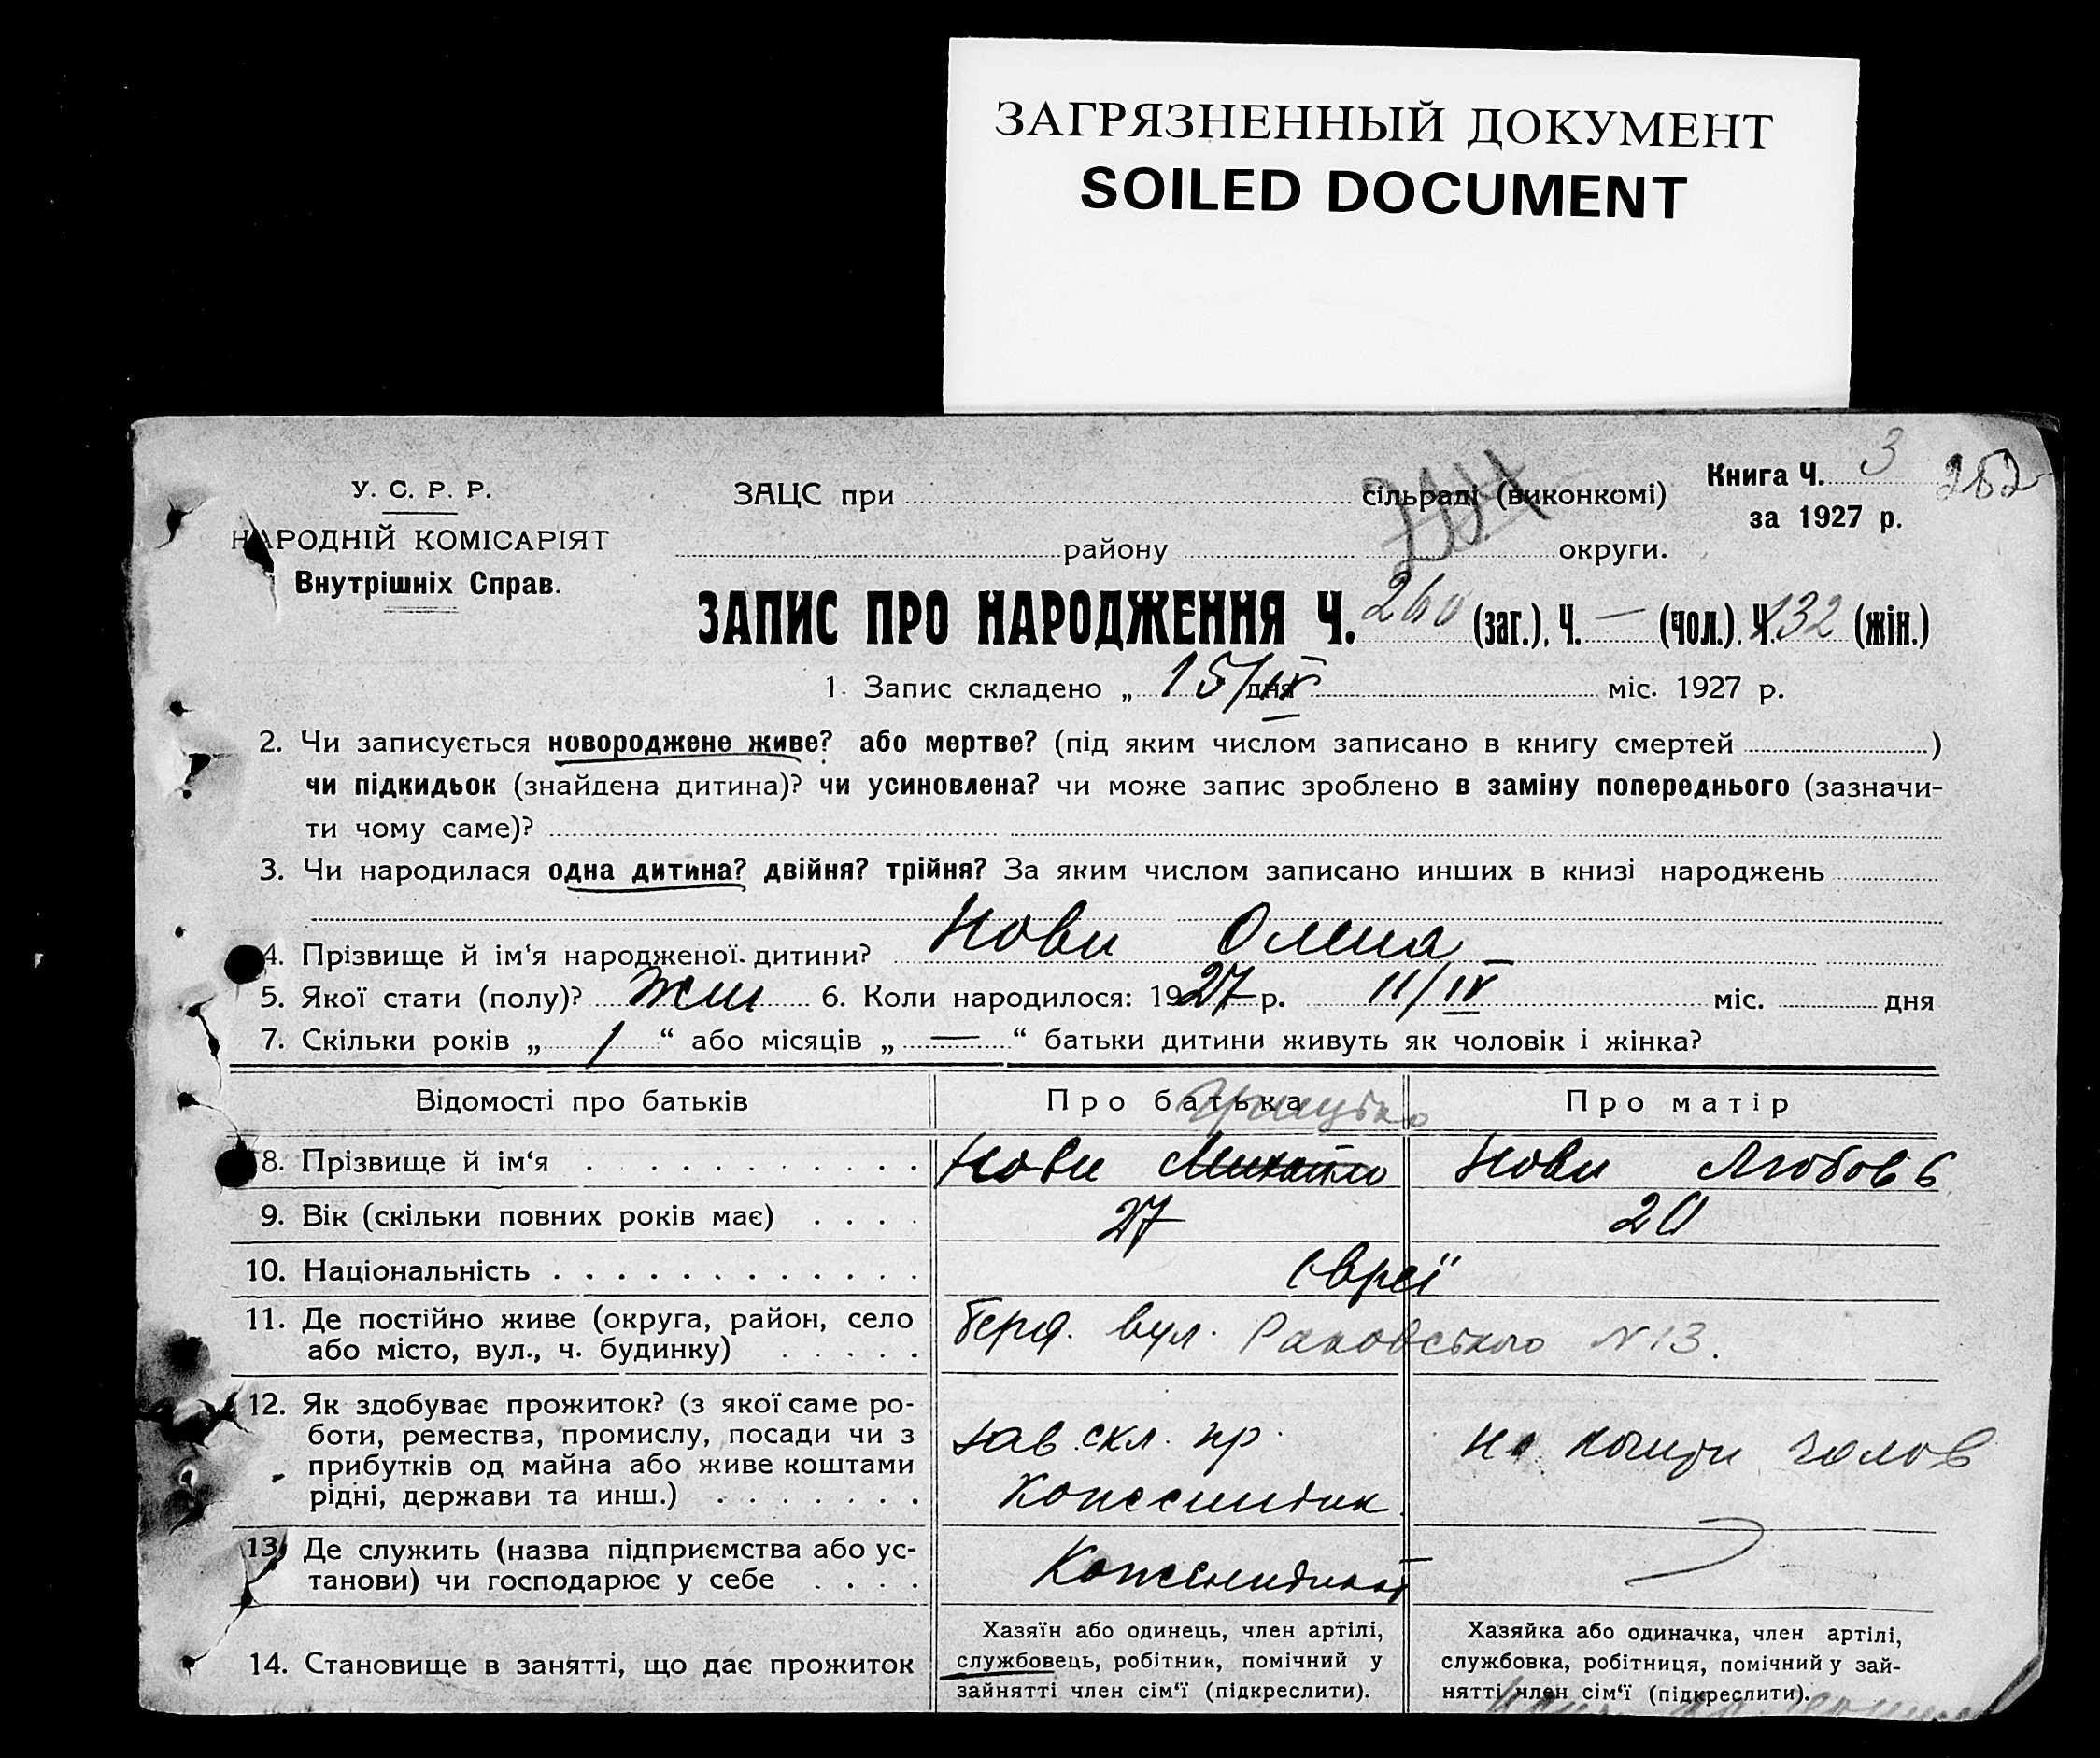 ЗАГРЯЗНЕННЫЙ ДОКУМЕНТ
SOILED DOCUMENT
У. С. Р. Р.
НАРОДНІЙ КОМІСАРІЯТ
Внутрішніх Справ.
ЗАЦС при сільраді (виконкомі)
району округи.
Книга Ч. 3 262
за 1927 р.
ЗАПИС ПРО НАРОДЖЕННЯ Ч. 260 (заг.), Ч. — (чол.), Ч. 132 (жін.)
1. Запис складено „ 15/IV дня міс. 1927 р.
2. Чи записується новороджене живе? або мертве? (під яким числом записано в книгу смертей )
чи підкидьок (знайдена дитина)? чи усиновлена? чи може запис зроблено в заміну попереднього (зазначи-
ти чому саме)?
3. Чи народилася одна дитина? двійня? трійня? За яким числом записано инших в книзі народжень
4. Прізвище й ім‘я народженої дитини? Нови Олена
5. Якої стати (полу)? жін 6. Коли народилося: 1927 р. 11/IV міс. дня
7. Скільки років „ 1 “ або місяців „ — “ батьки дитини живуть як чоловік і жінка?
Відомості про батьків Про батька Про матір
Грицько
8. Прізвище й ім‘я Нови Михайло Нови Любовь
9. Вік (скільки повних років має) 27 20
10. Національність євреї
11. Де постійно живе (округа, район, село
або місто, вул., ч. будинку) Берд. вул. Раковського N 13.
12. Як здобуває прожиток? (з якої саме ро-
боти, ремества, промислу, посади чи з
прибутків од майна або живе коштами
рідні, держави та инш.) зав. скл. пр. на кошти чолов
13. Де служить (назва підприємства або ус-
танови) чи господарює у себе
14. Становище в занятті, що дає прожиток
Хазяїн або одинець, член артілі,
службовець, робітник, помічний у
зайнятті член сім‘ї (підкреслити).
Хазяйка або одиначка, член артілі,
службовка, робітниця, помічний у зай-
нятті член сім‘ї (підкреслити).